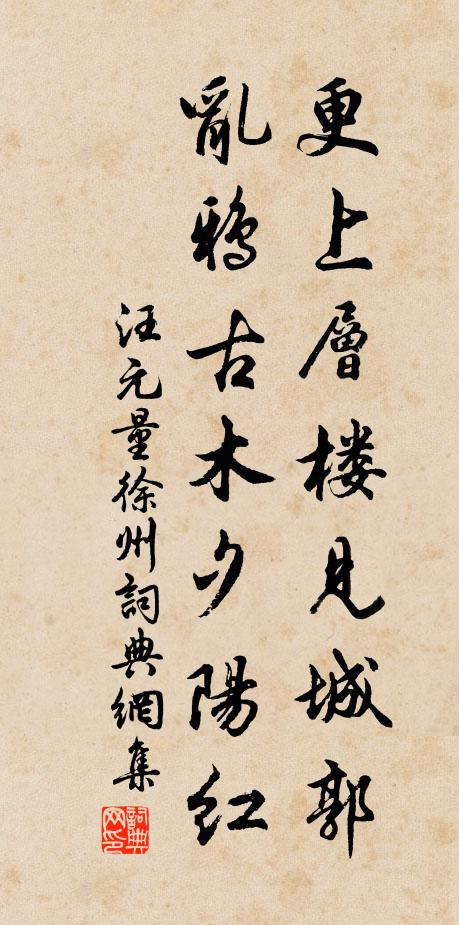 更上層楼見城郭
亂鴉古木夕陽紅
汪元量徐州詞典網集
詞典網印